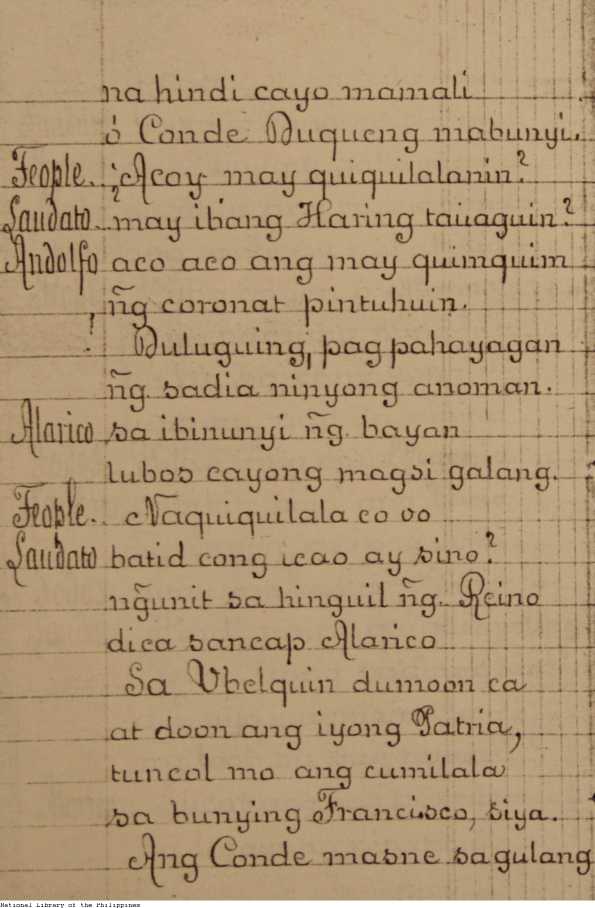 na hindi cayo mamali
ó Conde Duqueng mabunyi.
Feople. ¿Acoy may quiquilalanin?
Laudato. ¿may ibang Haring tauaguin?
Andolfo aco aco ang may quimquim
n͠g coronat pintuhuin.
! Duluguing, pag pahayagan
n͠g. sadia ninyong anoman.
Alarico sa ibinunyi n͠g. bayan
lubos cayong magsi galang.
Feople. Naquiquilala co oo
Laudato batid cong icao ay sino?
n͠gunit sa hinguil n͠g. Reino
dica sancap Alarico
Sa Vbelquin dumoon ca
at doon ang iyong Patria,
tuncol mo ang cumilala
sa bunying Francisco, siya.
Ang Conde masne sa gulang
National Library of the Philippines